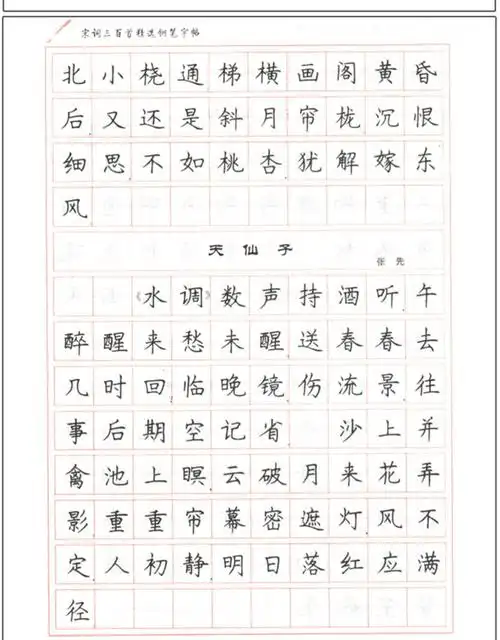 宋词三百首精选钢笔字帖
北小桡通梯横画阁黄昏
后,又还是斜月帘栊。沉恨
细思,不如桃杏,犹解嫁东
风。
天仙子
张先
《水调》数声持酒听,午
醉醒来愁未醒。送春春去
几时回?临晚镜,伤流景,往
事后期空记省。 沙上并
禽池上瞑,云破月来花弄
影。重重帘幕密遮灯,风不
定,人初静,明日落红应满
径。